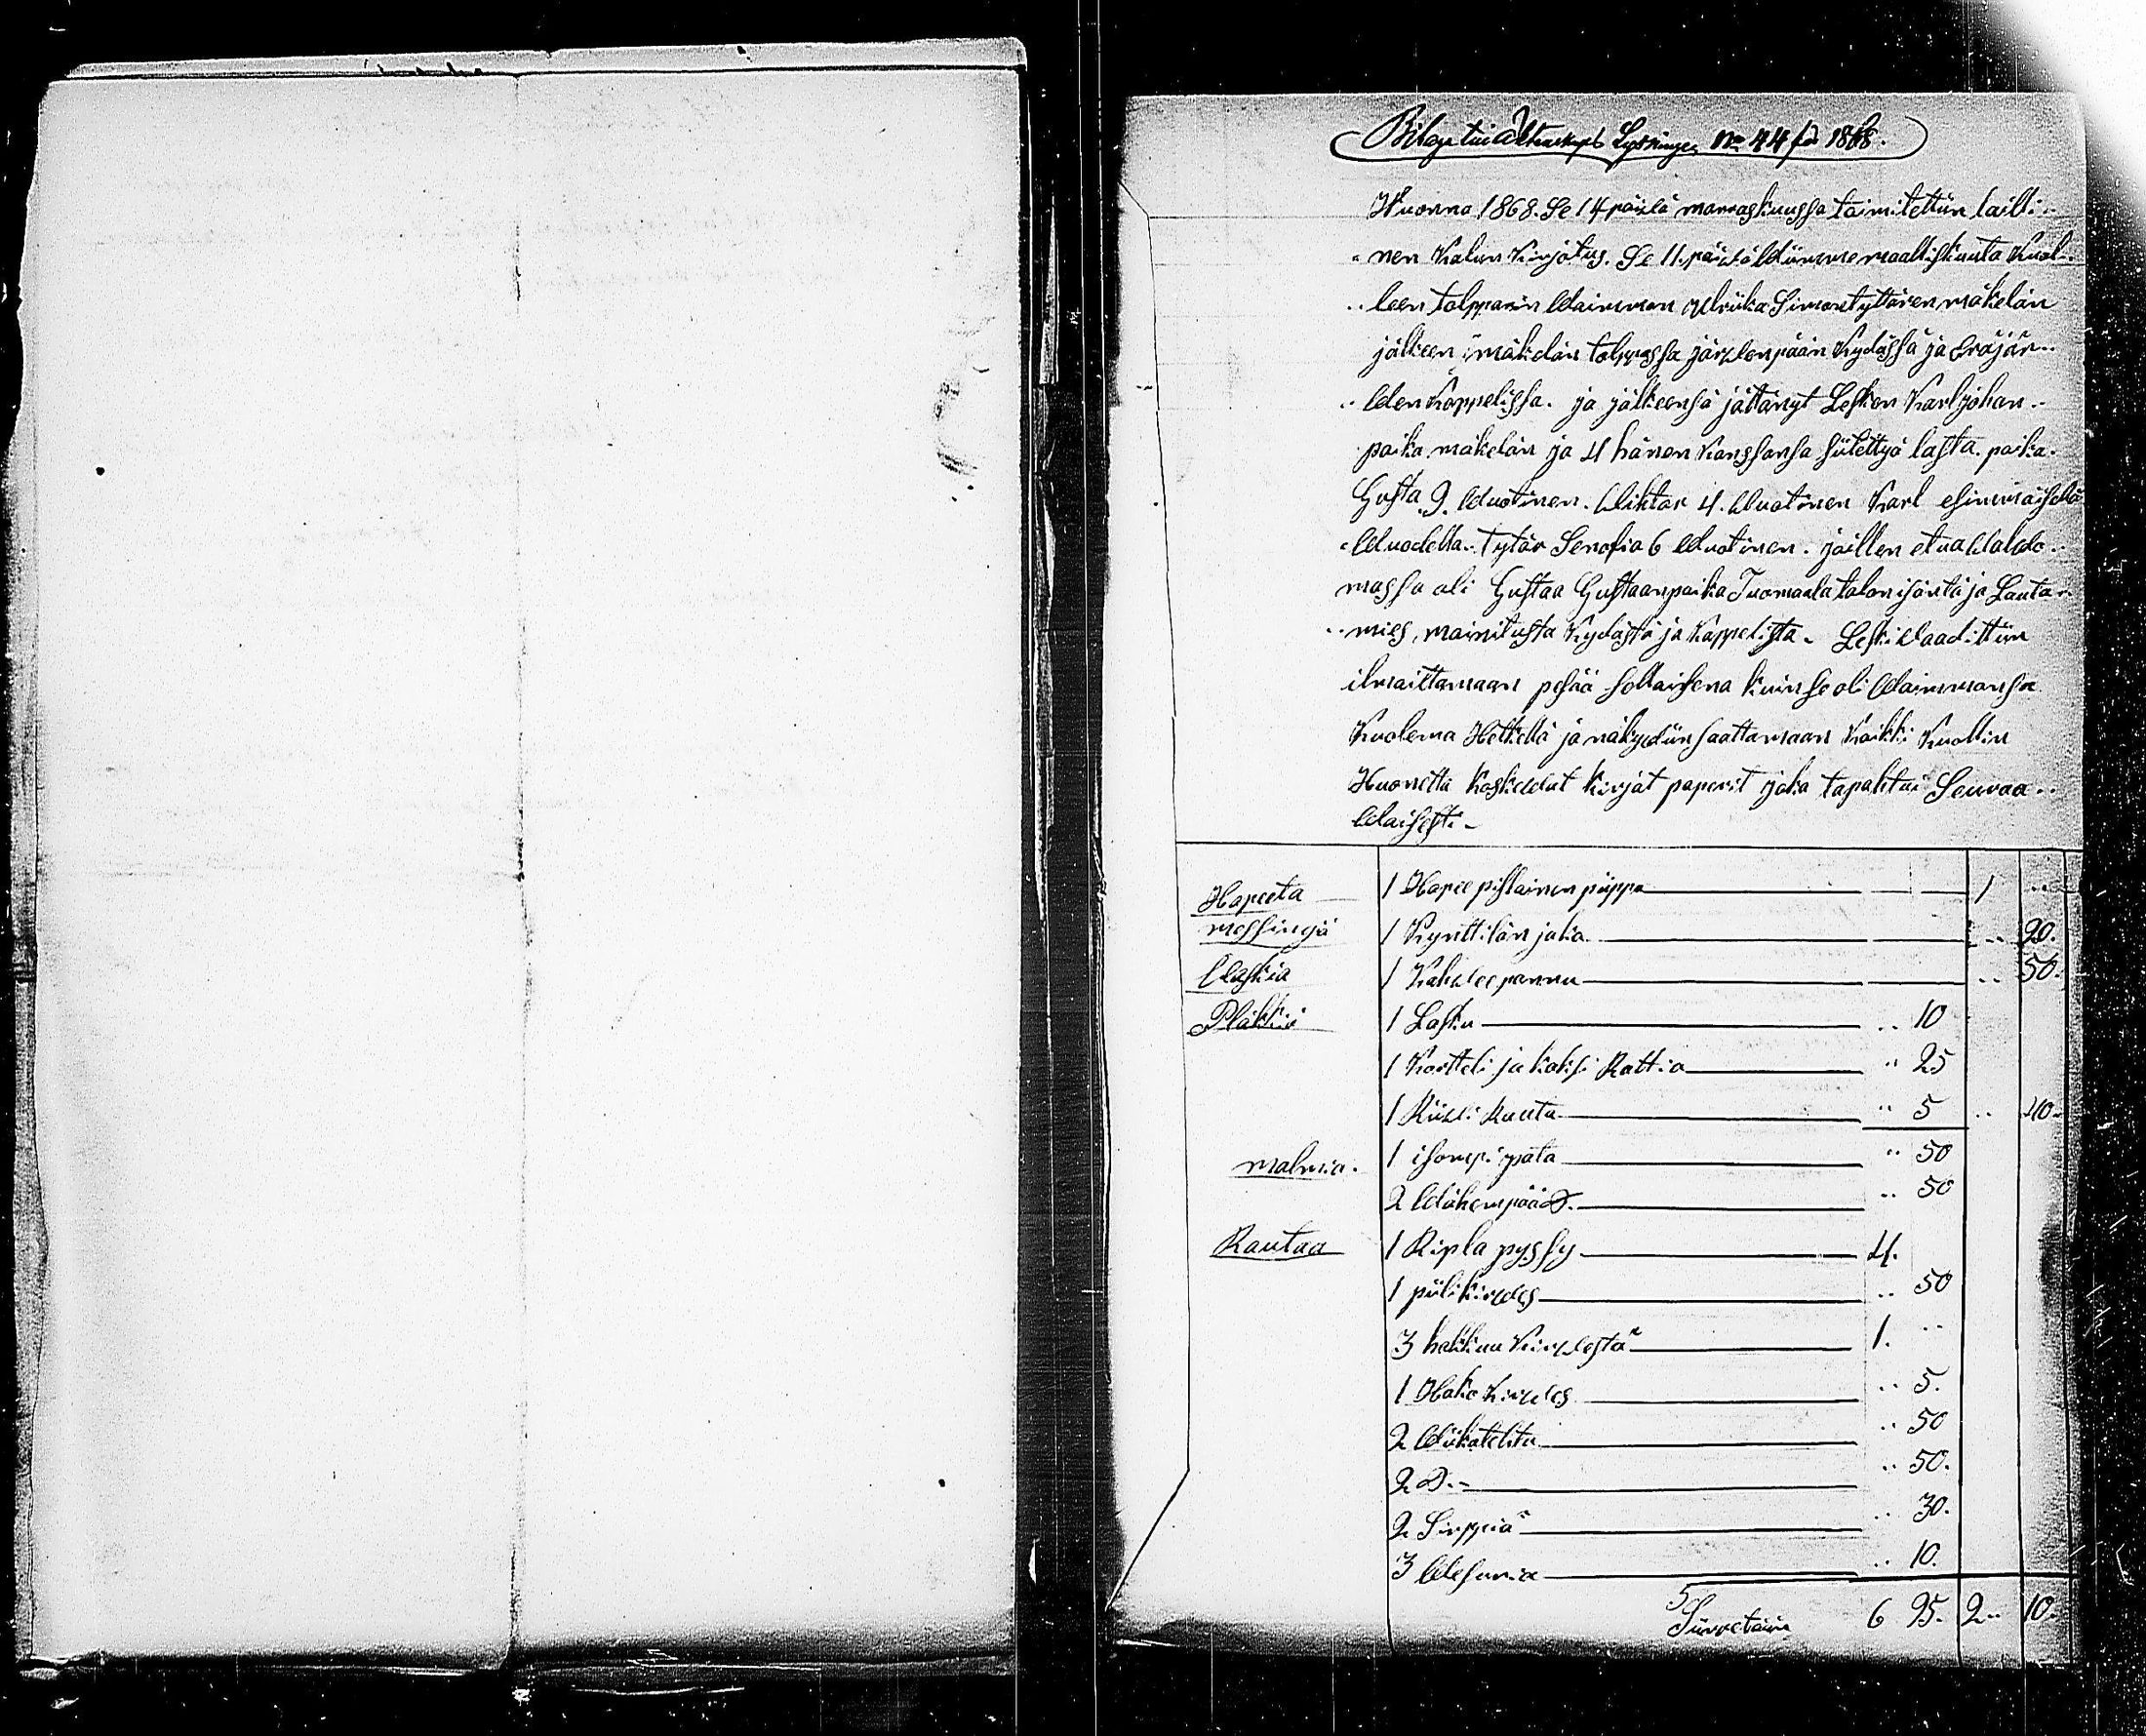 Bilaga till Aktenskaps Lysningen No 44 för 1868.
Wuonna 1868. Se 14 päivä marraskuussa toimitettiin lailli-
nen Kalun Kirjotus. Se 11. päivä Wiimme maaliskuuta Kuol-
leen torpparin Waimmon Ulriika Simontyttären mäkelän
jälkeen mäkelän torpassa järvenpään Kylässä ja Eräjär-
Wen Kappelissa. ja jälkeensä jättänyt Lesken Karl johan-
poika mäkelän ja 4 hänen Kanssansa siitettyä lasta. poika.
Gusta 9. Wuotinen. Wiktor 4. Wuotinen Karl esimmäisellä
Wuodella. Tytär Serafia 6 Wuotinen. joillen etua Walvo-
massa oli Gustaa Gustaanpoika Tuomaala talon isäntä ja Lauta-
mies, mainitusta Kylästä ja Kappelista. Leski Waadittiin
ilmaittamaan pesää sellaisena kuin se oli Waimmonsa
Kuolema Hetkellä ja näkywiin saattamaan Kaikki Kuollin
Huonetta Koskewat kirjat paperit joka tapahtui Seuraa-
Waisesti-
Hopeeta 1 Hopee pislainen piippu 1 ..
messingiä 1 Kynttilän jalka .. 20.
Waskia 1 Kahwee pannu .. 50.
Pläkkiä 1 Lasku .. 10
1 Kortteli ja kaksi Rattia .. 25
1 Riiwi Rauta .. 5 .. 40.
malmia. 1 isompi pata .. 50
2 Wähempää D. .. 50
Rautaa 1 Ripla pyssy 4.
1 piilikirwes .. 50
3 hakkuu Kirwestä 1. ..
1 Hako kirwes .. 5.
2 Wiikatehta .. 50
2 D.- .. 50.
2 Sirppiä .. 30.
3 Wesuria .. 10.
Siirretään 6 95. 2.. 10.